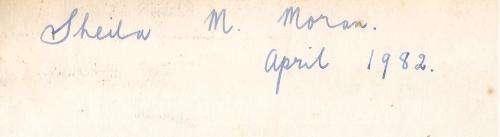 Sheila M. Moran.
April 1982.